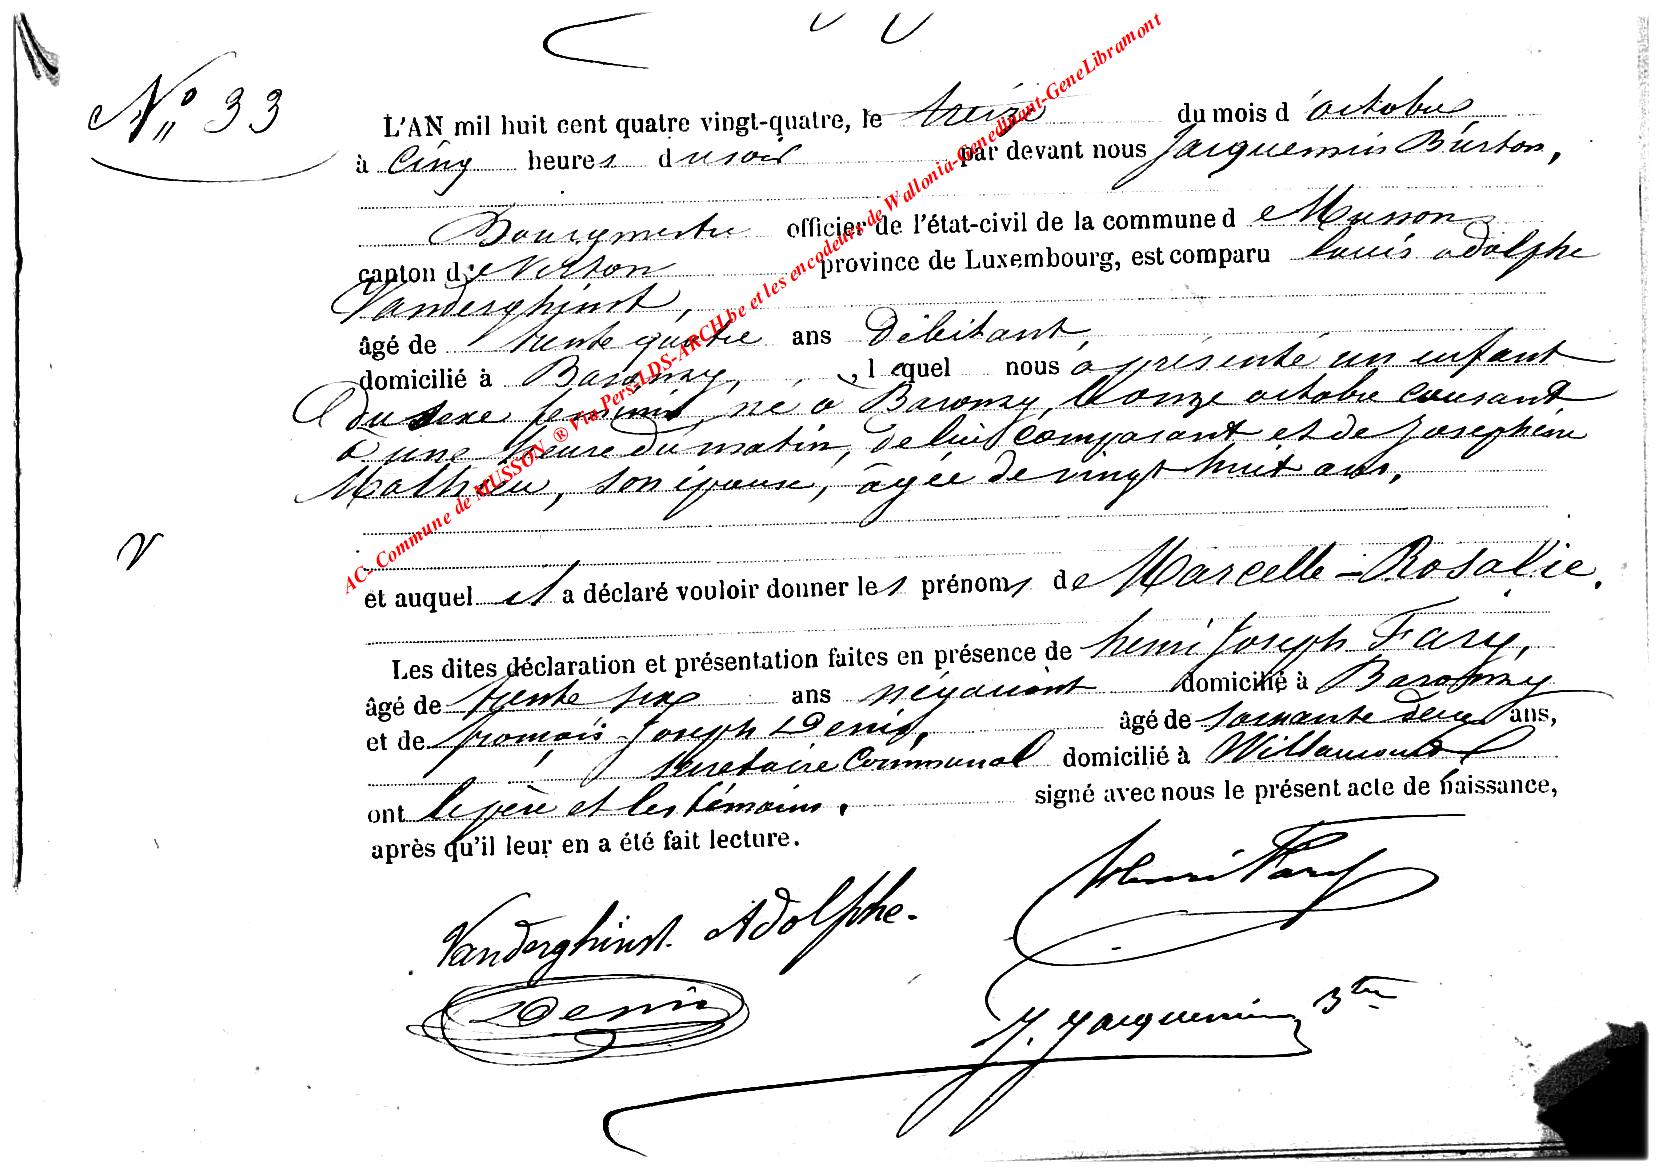 N° 33
L'AN mil huit cent quatre vingt-quatre, le treize du mois d'octobre
à cinq heures du soir par devant nous Jacquemin Burton,
Bourgmestre officier de l'état-civil de la commune de Musson
canton de Virton province de Luxembourg, est comparu Louis adolphe
Vanderghinst,
âgé de trente quatre ans Débitant,
domicilié à Baranzy, lequel nous a présenté un enfant
du sexe féminin, né à Baranzy, le onze octobre courant
à une heure du matin, de lui comparant et de Joséphine
Mathieu, son épouse, âgée de vingt huit ans,
et auquel il a déclaré vouloir donner les prénoms de Marcelle-Rosalie.
Les dites déclaration et présentation faites en présence de henri Joseph Fary,
âgé de trente six ans négociant domicilié à Baranzy
et de françois Joseph Denis, âgé de soixante deux ans,
secretaire Communal domicilié à Willancourt
ont le père et les témoins, signé avec nous le présent acte de naissance,
après qu'il leur en a été fait lecture.
Vanderghinst Adolphe
Henri Fary
Denis
J. Jacquemin Btre
AC- Commune de MUSSON ® Via Pers-LDS-ARCH.be et les encodeurs de Wallonia-Genedinant-GeneLibramont